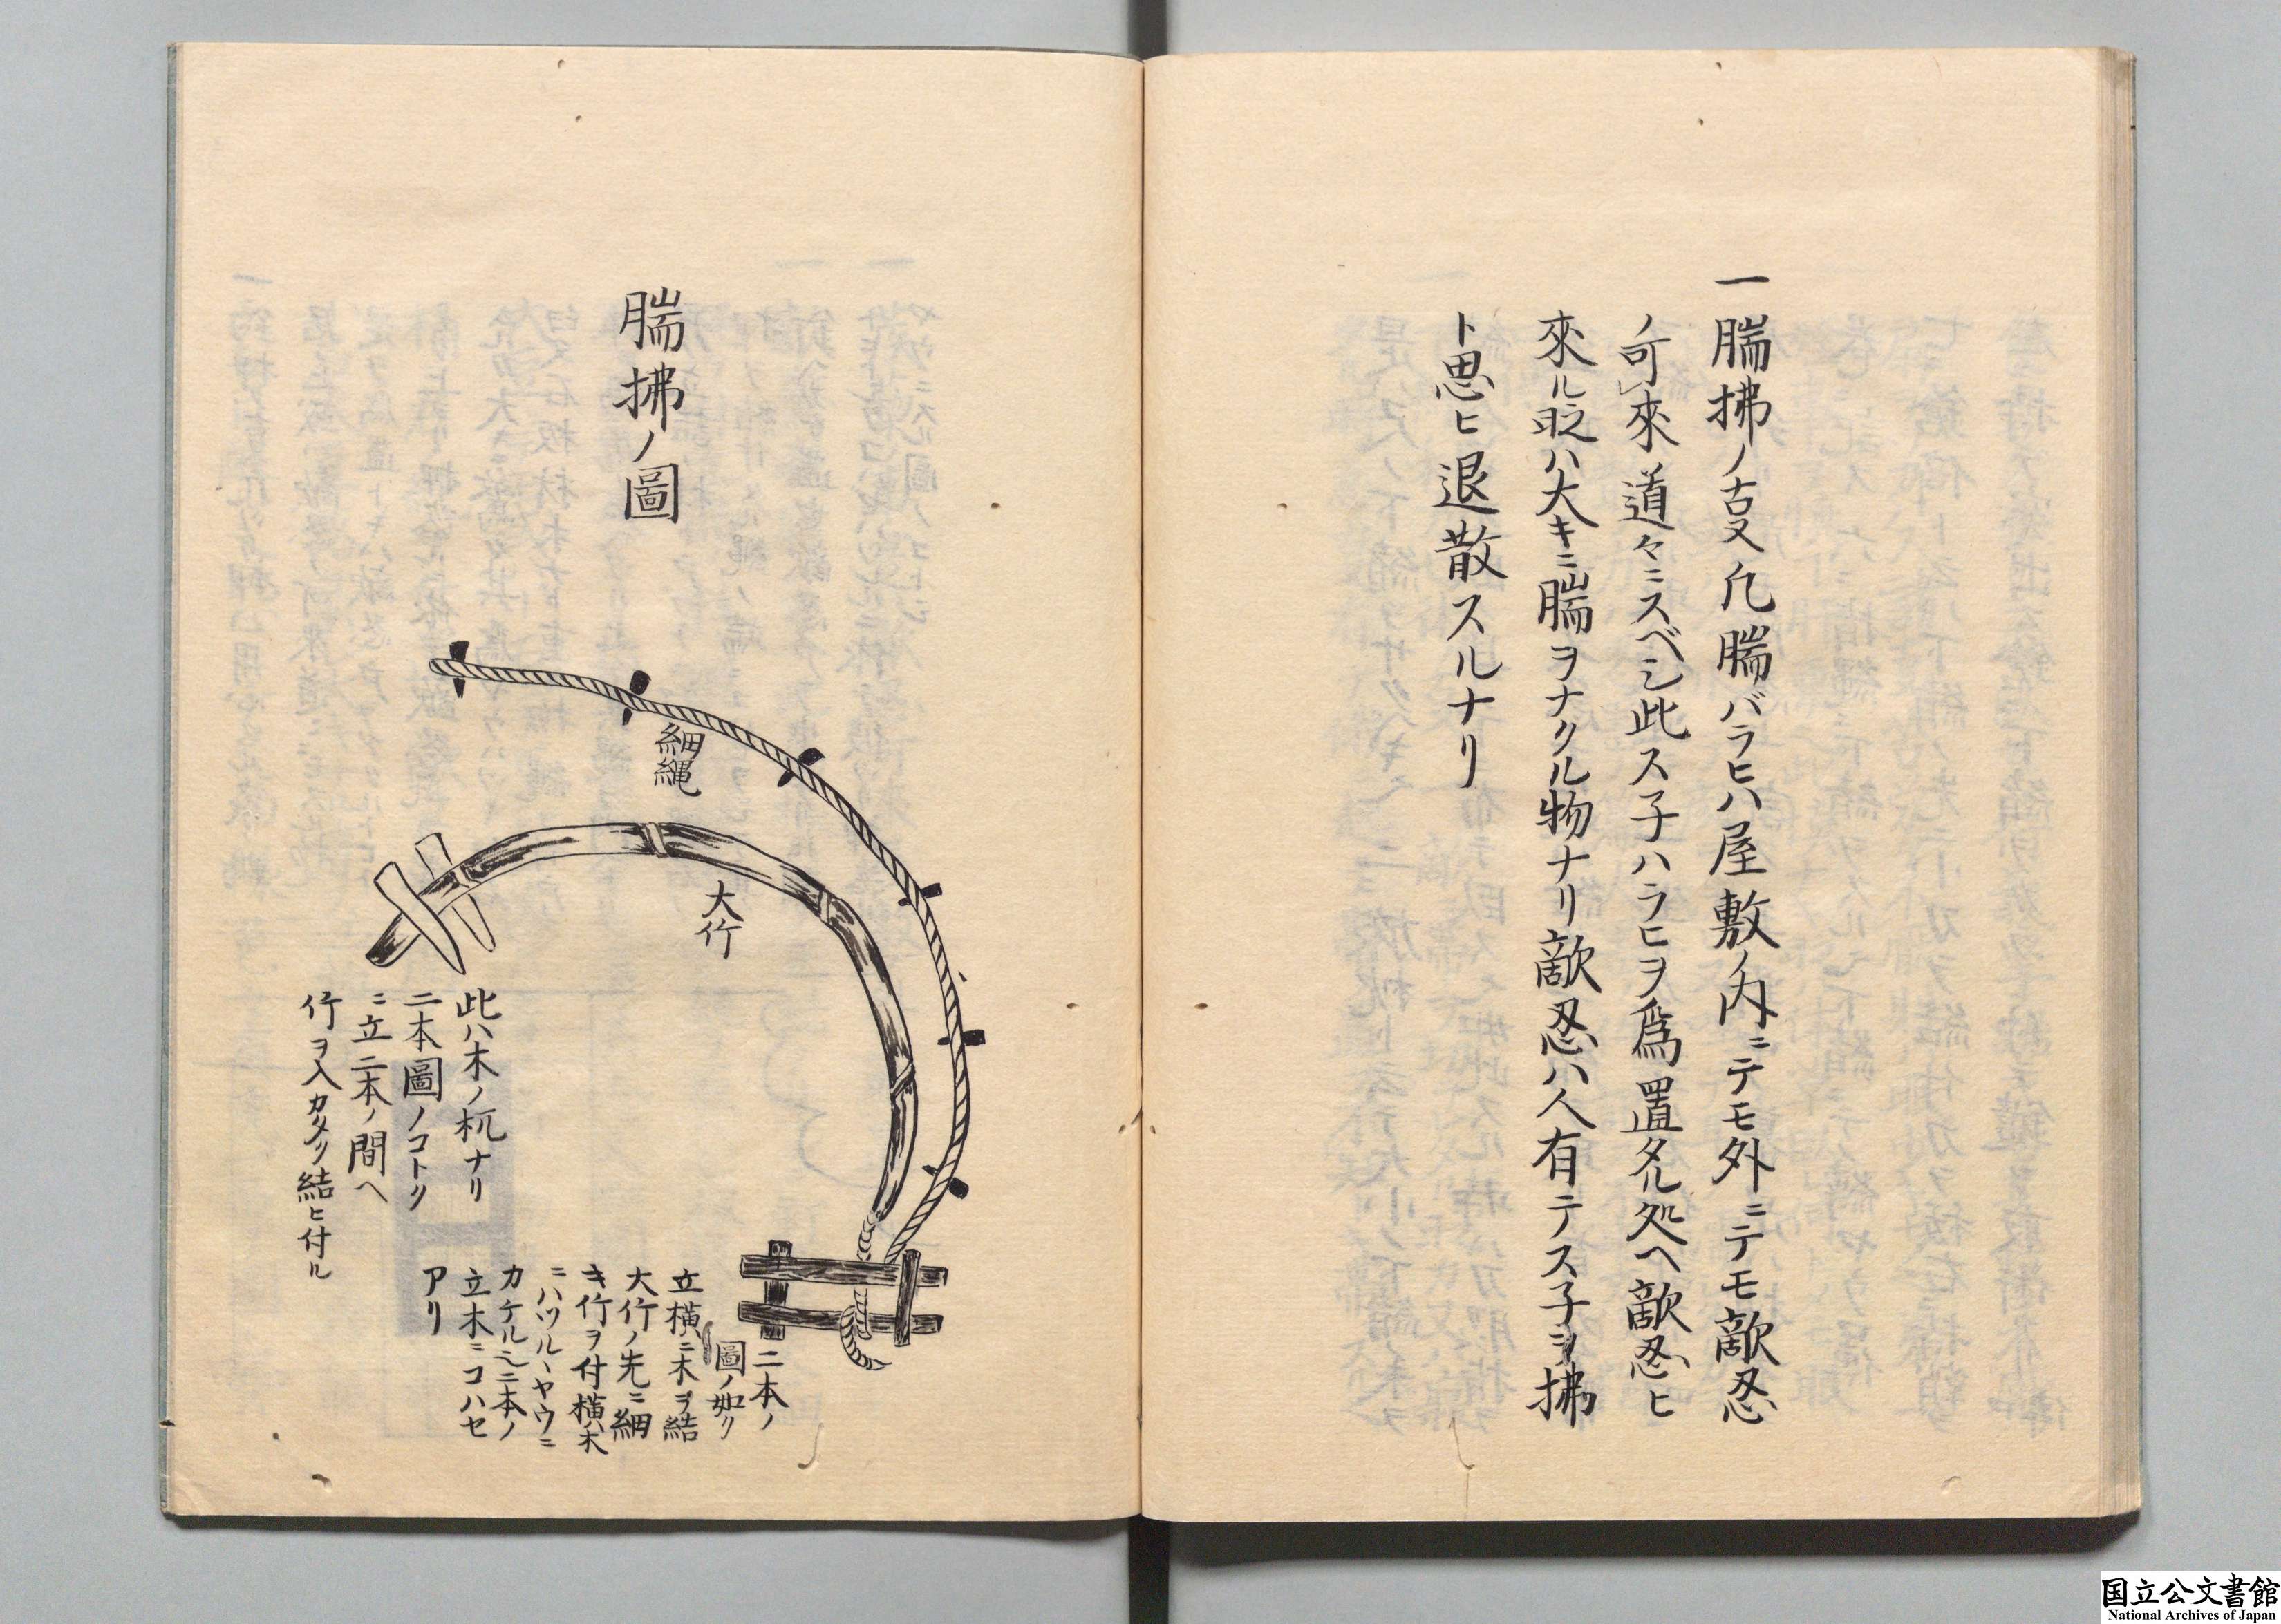 一腨拂ノ古叓凢腨バラヒハ屋敷ノ内ニテモ外ニテモ敵忍
ノ可レ來道々ニスベシ此ス子ハラヒヲ爲置タル処ヘ敵忍ヒ
來ル時ハ大キニ腨ヲナクル物ナリ敵忍ハ人有テス子ヲ拂
ト思ヒ退散スルナリ
腨拂ノ圖
細縄
大竹
此ハ木ノ杭ナリ
二本圖ノコトク
ニ立二本ノ間ヘ
竹ヲ入カタク結ヒ付ル
二本ノ
圖ノ如ク
立横ニ木ヲ結
大竹ノ先ニ細
キ竹ヲ付横木
ニハツルヽヤウニ
カケル也二本ノ
立木ニコハセ
アリ
国立公文書館
National Archives of Japan